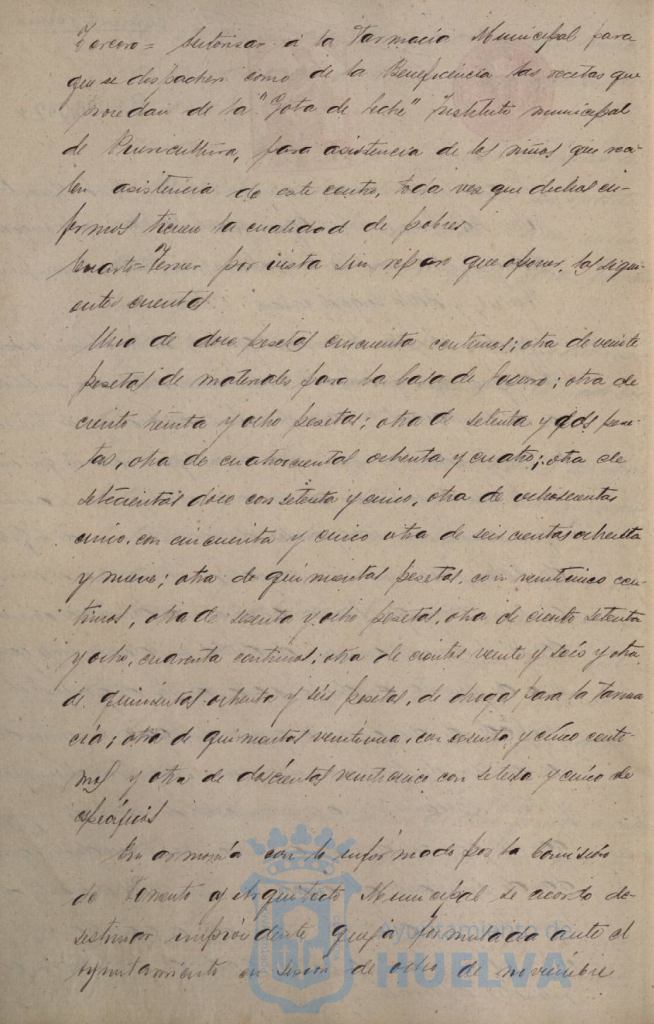 Tercero = Autorizar a la Farmacia Municipal para
que se despachen como de la Beneficencia las recetas que
procedan de la "Gota de leche" Instituto municipal
de Puericultura, para asistencia de los niños que reci-
ben asistencia de este centro, toda vez que dichos en-
fermos tienen la cualidad de pobres
Cuarto = Tener por vista sin reparo que oponer, las sigui-
entes cuentas
Una de doce pesetas cincuenta centimos; otra de veinte
pesetas de materiales para la casa de Socorro; otra de
ciento treinta y ocho pesetas; otra de setenta y dos pese-
tas, otra de cuatrocientas ochenta y cuatro; otra de
setecientas doce con setenta y cinco, otra de ochocientas
cinco, con cincuenta y cinco otra de seiscientas ochenta
y nueve; otra de quinientas pesetas, con veinticinco cen-
timos, otra de sesenta y ocho pesetas, otra de ciento setenta
y ocho, cuarenta centimos; otra de cientos veinte y seis y otra
de quinientas ochenta y seis pesetas, de drogas para la Farma-
cia; otra de quinientas veintiuna, con sesenta y cinco centi-
mos y otra de doscientas veinticinco con setenta y cinco de
especificos
En armonía con lo informado por la Comisión
de Fomento y Arquitecto Municipal se acordo de-
sestimar queja formulada ante el
Ayuntamiento en sesion de ocho de noviembre
Ayuntamiento de
HUELVA